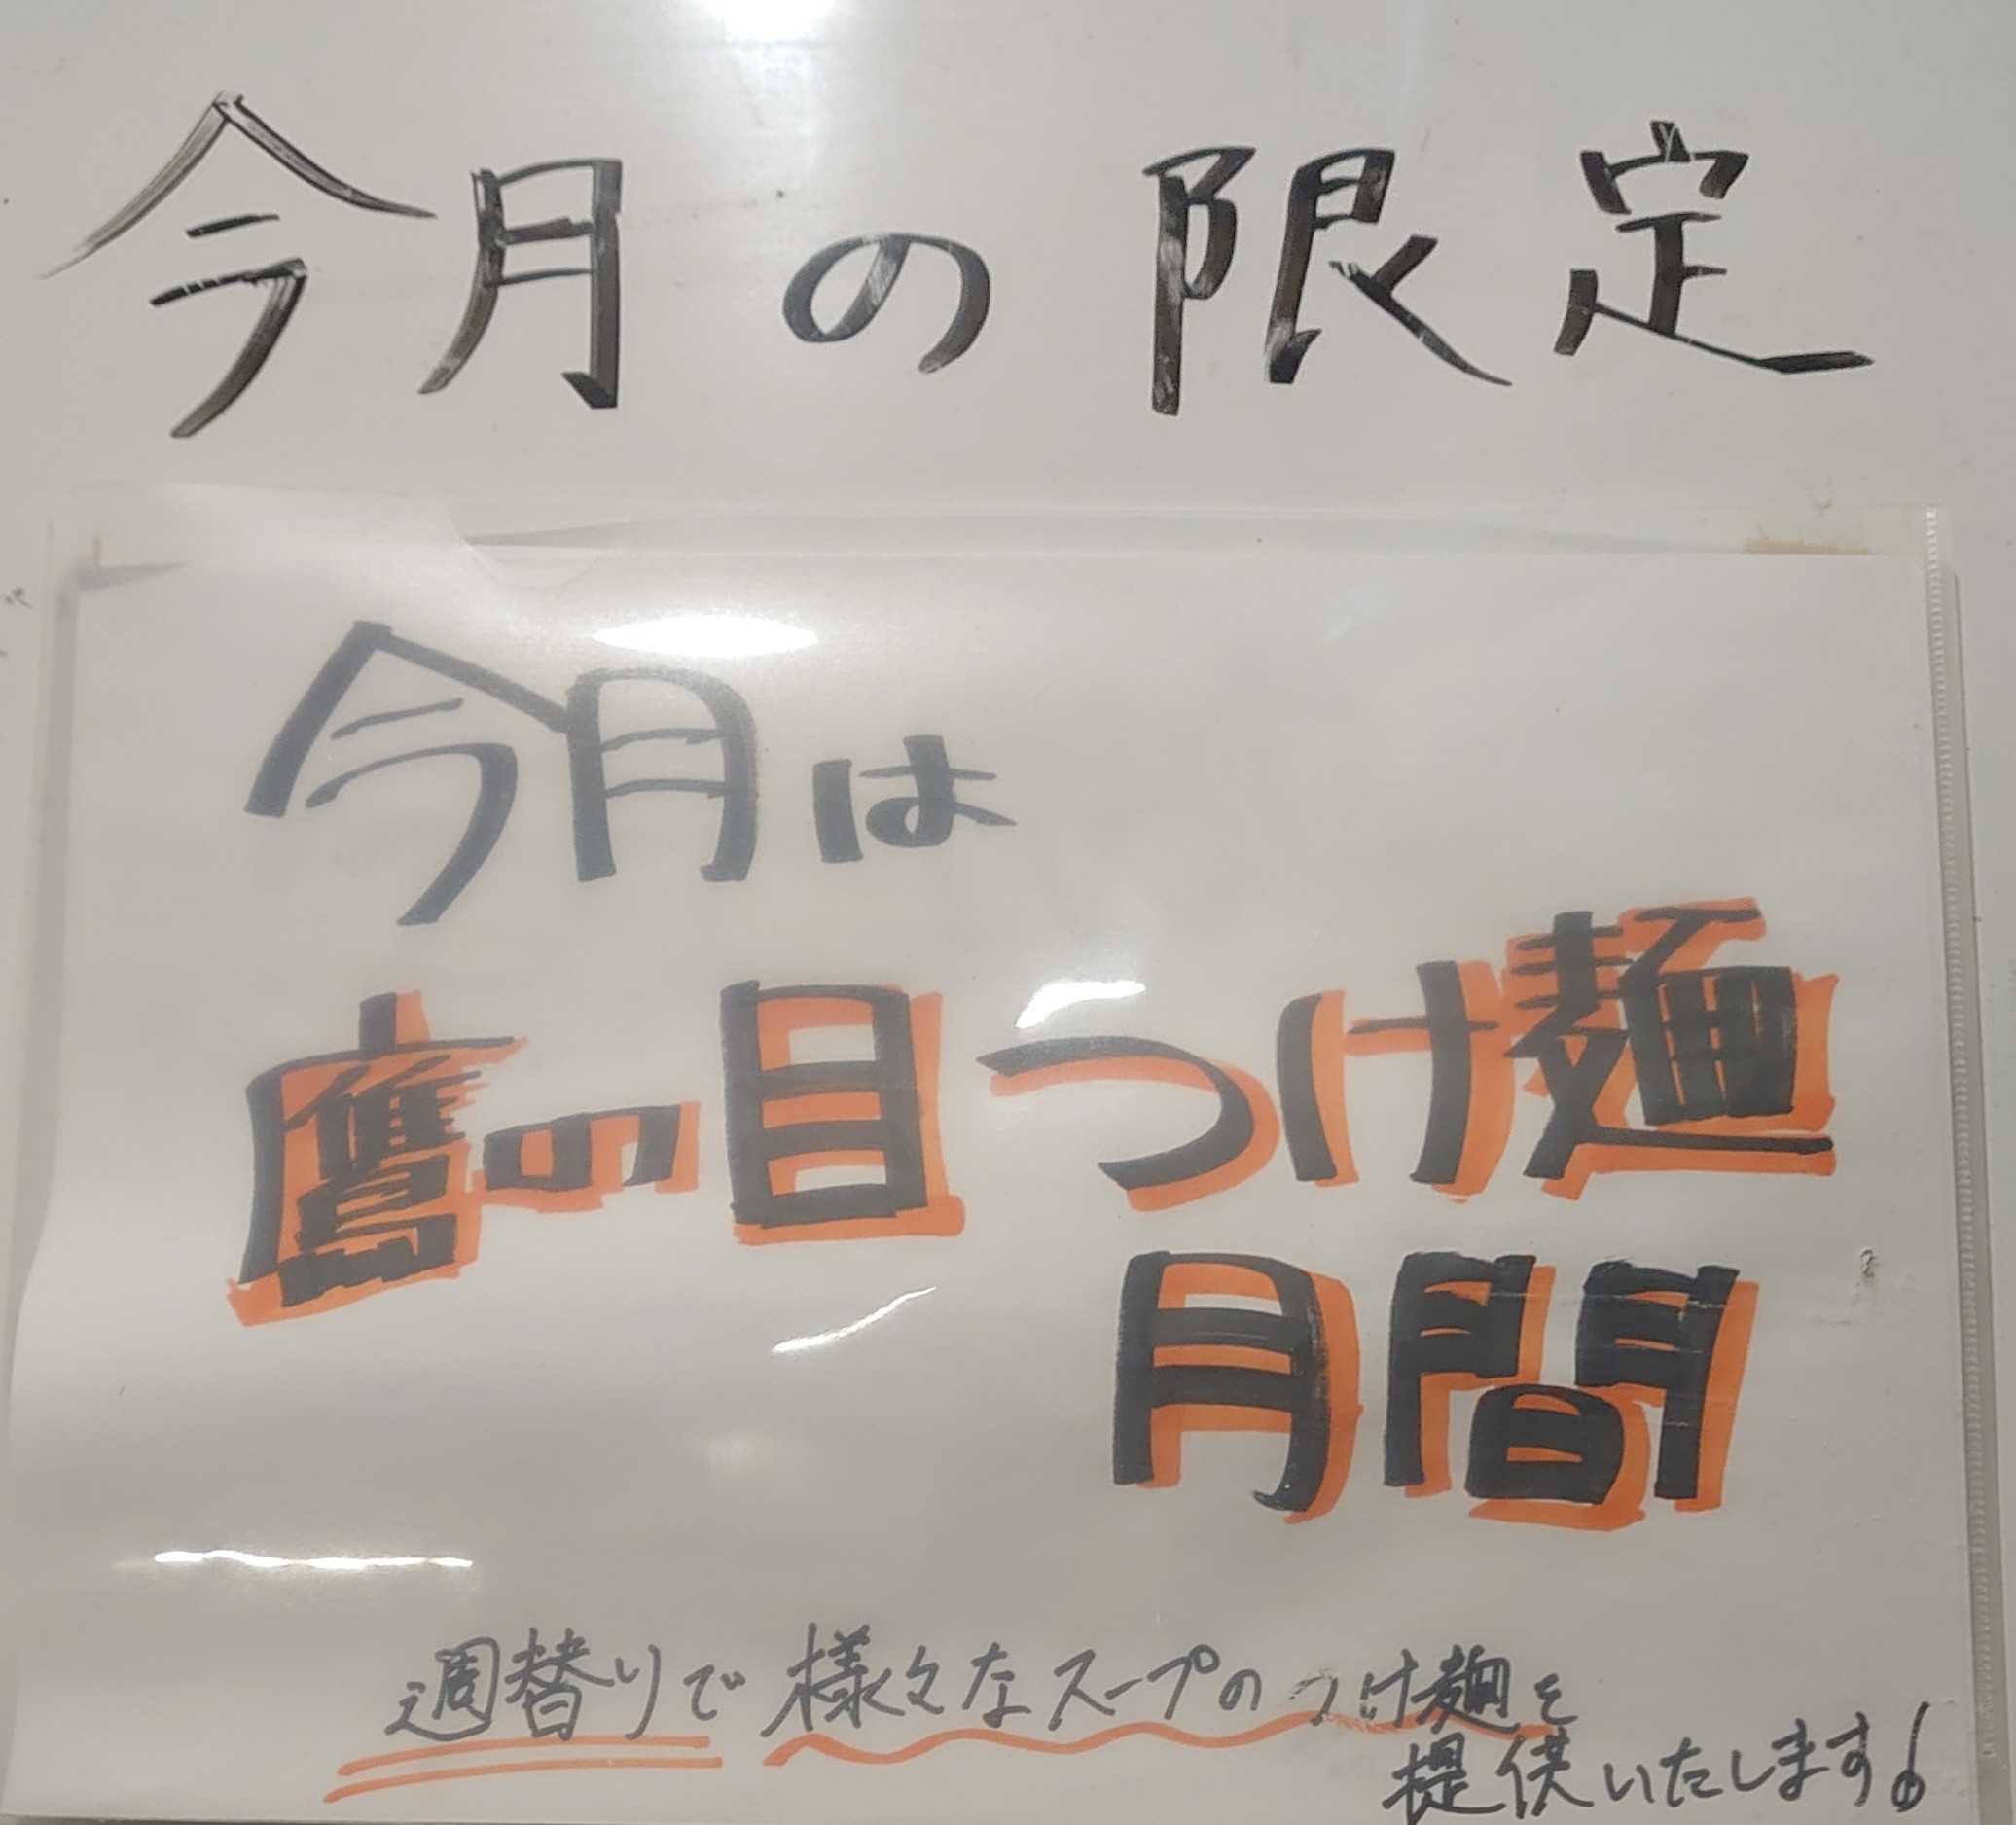 今月の限定
今月は
鷹の目つけ麺
月間
週替りで様々なスープのつけ麺を
提供いたします!